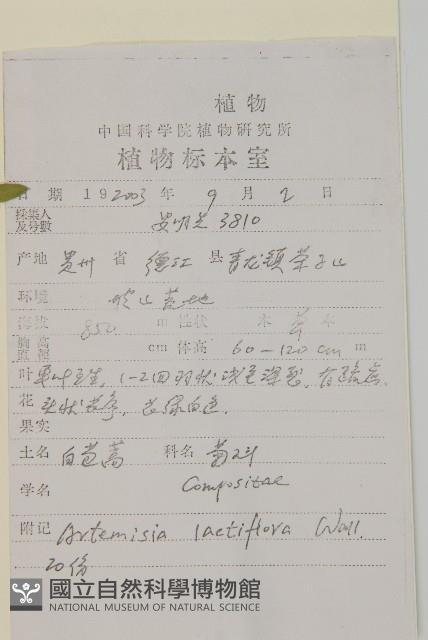 植物
中国科学院植物研究所
植物标本室
日期 19 2003 年 9 月 2 日
採集人
及号數 安明态 3810
产地 贵州 省 德江 县 青龙镇
环境 坡山荒地
海拔 850 m 性状 木 草 本
胸高
直徑 cm 体高 60-120 cm m
叶 单叶互生, 1-2回羽状
花 头状花序, 花绿白色.
果实
土名 白苞蒿 科名 菊科
学名 Compositae
附记 Artemisia lactiflora Wall.
20份
國立自然科學博物館
NATIONAL MUSEUM OF NATURAL SCIENCE